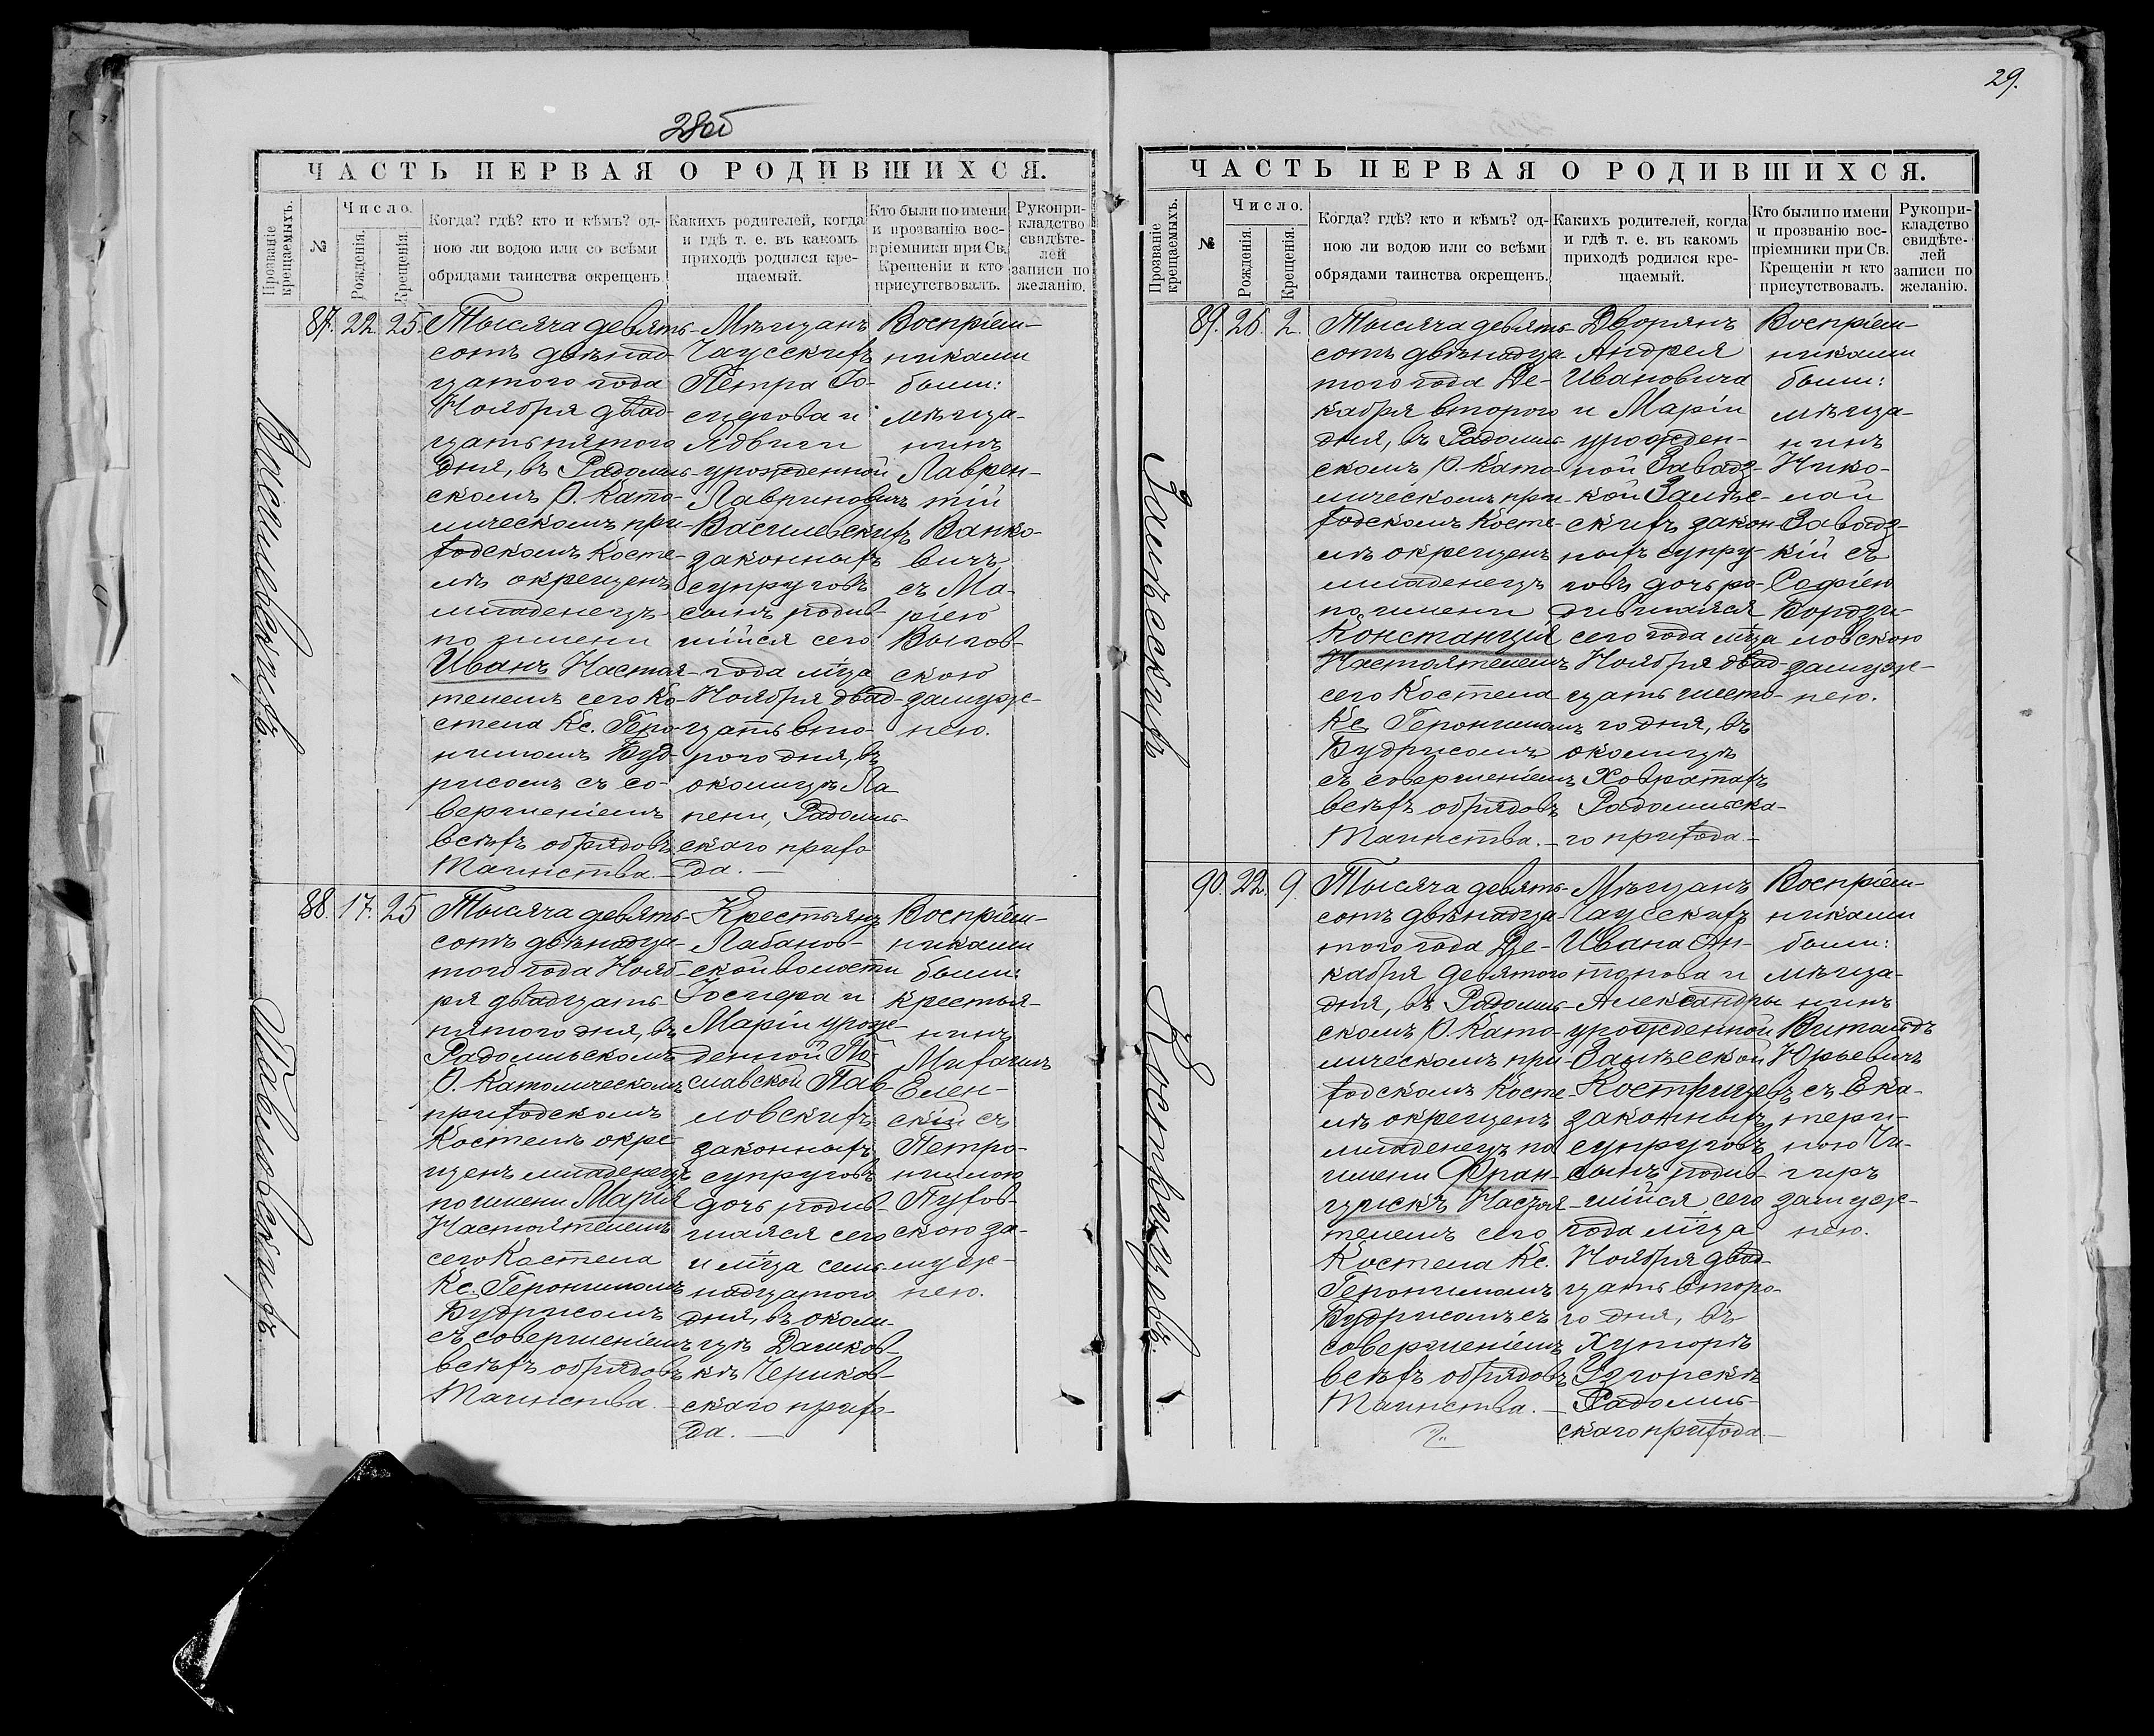 28об
ЧАСТЬ ПЕРВАЯ О РОДИВШИХСЯ.
Прозваніе крещаемыхъ.
№
Число.
Рожденія.
Крещенія.
Когда? гдѣ? кто и кѣмъ? од-
ною ли водою или со всѣми
обрядами таинства окрещенъ.
Какихъ родителей, когда
и гдѣ т. е. въ какомъ
приходѣ родился кре-
щаемый.
Кто были по имени
и прозванію вос-
пріемники при Св.
Крещеніи и кто
присутствовалъ.
Рукопри-
кладство
свидѣте-
лей
записи по
желанію.
Василевскихъ.
87. 22. 25.
Тысяча девять-
сотъ двѣнад-
цатого года
Ноября двад-
цать пятого
дня, въ Радомль-
скомъ Р. Като-
лическомъ при-
ходскомъ Косте-
лѣ окрещенъ
младенецъ
по имени
Иванъ Настоя-
телемъ сего Ко-
стела Кс. Геро-
нимомъ Буд-
рисомъ съ со-
вершеніемъ
всѣхъ обрядовъ
Таинства.—
Мѣщанъ
Чаусскихъ
Петра Іо-
сифова и
Ядвиги
урожденной
Лавриновичъ
Василевскихъ
законныхъ
супруговъ
сынъ родив-
шійся сего
года м-ца
Ноября двад-
цать вто-
рого дня, въ
околицѣ Ла-
пени, Радомль-
скаго прихо
да.—
Воспріем-
никами
были:
мѣща-
нинъ
Лаврен-
тій
Ванко-
вичъ
съ Ма-
ріею
Выгов-
скою
замуж-
нею.
Павловскихъ.
88. 17. 25
Тысяча девять-
сотъ двѣнадца-
того года Нояб-
ря двадцать
пятого дня, въ
Радомльскомъ
Р. Католическомъ
приходскомъ
Костелѣ окре-
щенъ младенецъ
по имени Марія
Настоятелемъ
сего Костела
Кс. Геронимомъ
Будрисомъ
съ совершеніемъ
всѣхъ обрядовъ
Таинства.—
Крестьянъ
Лабанов-
ской волости
Іосифа и
Маріи урож-
денной По-
славской Пав-
ловскихъ
законныхъ
супруговъ
дочь родив-
шаяся сего
и м-ца сем-
надцатого
дня, въ околи-
цѣ Дашков-
кѣ Чериков-
скаго прихо-
да.—
Воспріем-
никами
были:
крестья-
нинъ
Михаилъ
Елен-
скій съ
Петро-
нилою
Пухов-
скою за-
муж-
нею.
29.
ЧАСТЬ ПЕРВАЯ О РОДИВШИХСЯ.
Прозваніе крещаемыхъ.
№
Число.
Рожденія.
Крещенія.
Когда? гдѣ? кто и кѣмъ? од-
ною ли водою или со всѣми
обрядами таинства окрещенъ.
Какихъ родителей, когда
и гдѣ т. е. въ какомъ
приходѣ родился кре-
щаемый.
Кто были по имени
и прозванію вос-
пріемники при Св.
Крещеніи и кто
присутствовалъ.
Рукопри-
кладство
свидѣте-
лей
записи по
желанію.
Залѣсскихъ
89. 26. 2.
Тысяча девять-
сотъ двѣнадца-
того года Де-
кабря второго
дня, въ Радомль-
скомъ Р. Като-
лическомъ при-
ходскомъ Косте-
лѣ окрещенъ
младенецъ
по имени
Констанція
Настоятелемъ
сего Костела
Кс Геронимомъ
Будрисомъ
съ совершеніемъ
всѣхъ обрядовъ
Таинства.—
Дворянъ
Андрея
Ивановича
и Маріи
урожден-
ной Завадз-
кой Залѣс-
скихъ закон-
ныхъ супру-
говъ дочь ро-
дившаяся
сего года м-ца
Ноября двад-
цать шесто-
го дня, въ
околицѣ
Ховратахъ
Радомльска-
го прихода—
Воспріем-
никами
были:
мѣща-
нинъ
Нико-
лай
Завадз-
кій съ
Софіею
Борози-
ловскою
замуж-
нею.
Кострицевъ.
90. 22. 9.
Тысяча девять-
сотъ двѣнадца-
того года Де-
кабря девятого
дня, въ Радомль-
скомъ Р. Като-
лическомъ при-
ходскомъ Косте-
лѣ окрещенъ
младенецъ по
имени Фран-
цискъ Настоя-
телемъ сего
Костела Кс.
Геронимомъ
Будрисомъ съ
совершеніемъ
всѣхъ обрядовъ
Таинства.—
Мѣщанъ
Чаусскихъ
Ивана Ан-
тонова и
Александры
урожденной
Залѣсской
Кострицевъ
законныхъ
супруговъ
сынъ родив-
шійся сего
года м-ца
Ноября двад-
цать второ-
го дня, въ
Хуторѣ
Узгорскѣ
Радомль-
скаго прихода.—
Воспріем-
никами
были:
мѣща-
нинъ
Витольдъ
Юрьевичъ
съ Ека-
тери-
ною Чи-
гиръ
замуж-
нею.